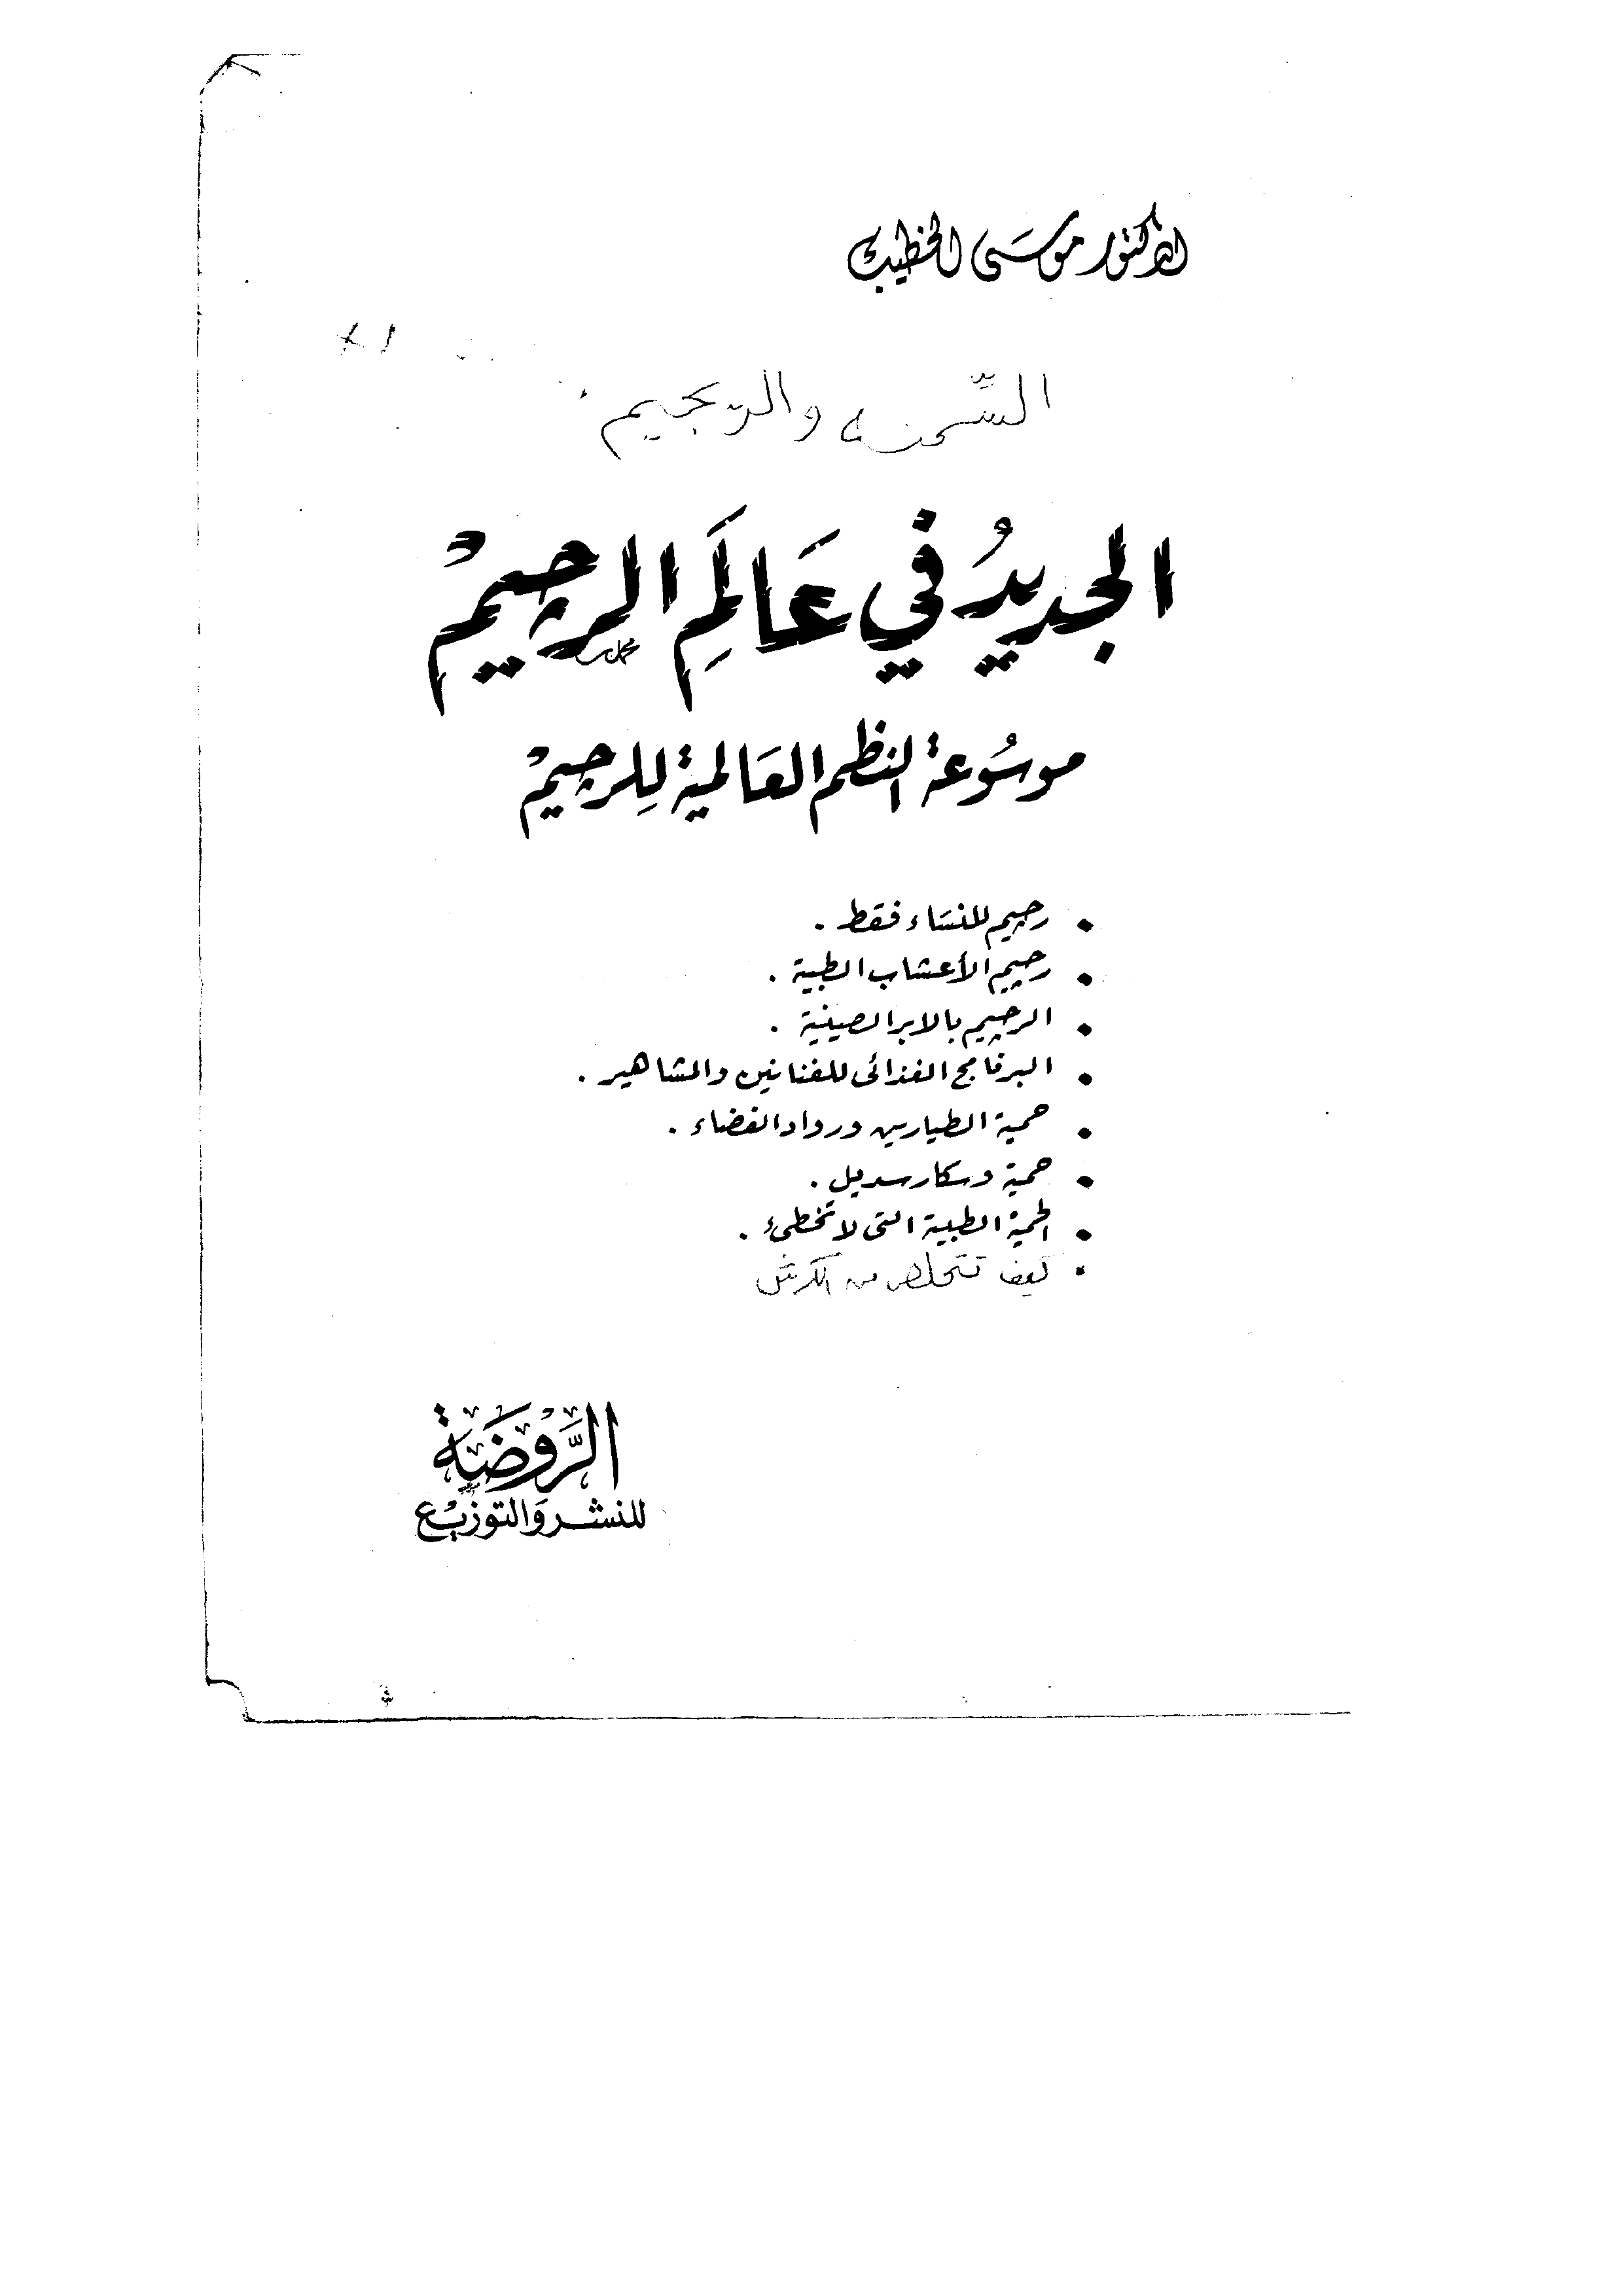 الدكتور موسَى الخطيب
السّمنه والريجيم
الجديدُ في عَالَمِ الرچيمْ
موسُوعة النظم العَالمية لِلرچيمْ
• رچيم للنسَاء فقط .
• رچيم الأعشاب الطبية .
• الرچيم بالابر الصينية .
• البرنامج الغذائى للفنانين والمشاهير .
• حمية الطيارين ورواد الفضاء .
• حمية وسكارسديل .
• الحمية الطبية التى لا تخطئ .
• كيف تتخلص من الكرش
الرَّوْضَة
للنشر وَالتوزيْع